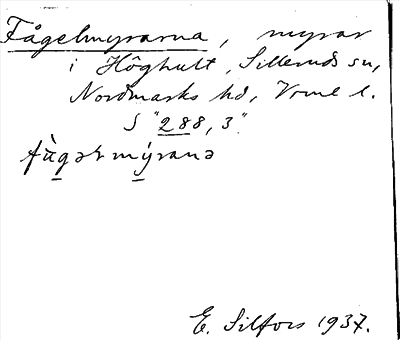 Fågelmyrarna, myrar
i Höghult, Silleruds sn,
Nordmarks hd, Vrml l.
S "288, 3".
fùgəɫmýranə
E. Silfors 1937.